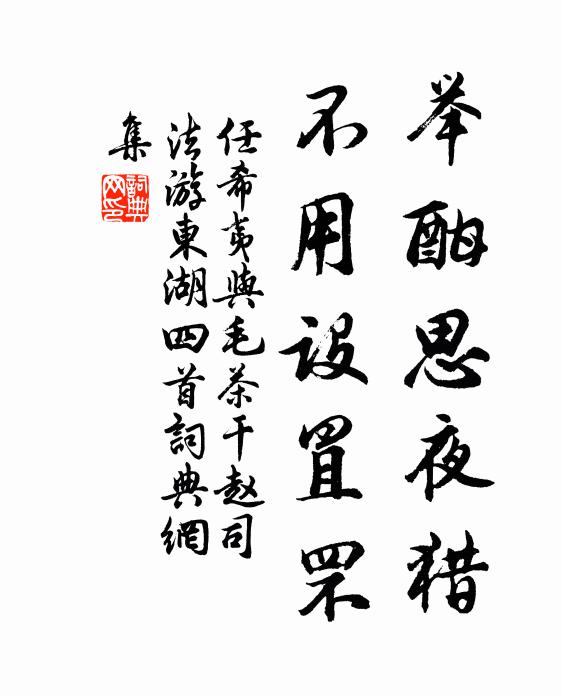 举酣思夜猎
不用設罝罘
任希夷與毛茶干赵司
法游東湖四首詞典網
集
詞典网印